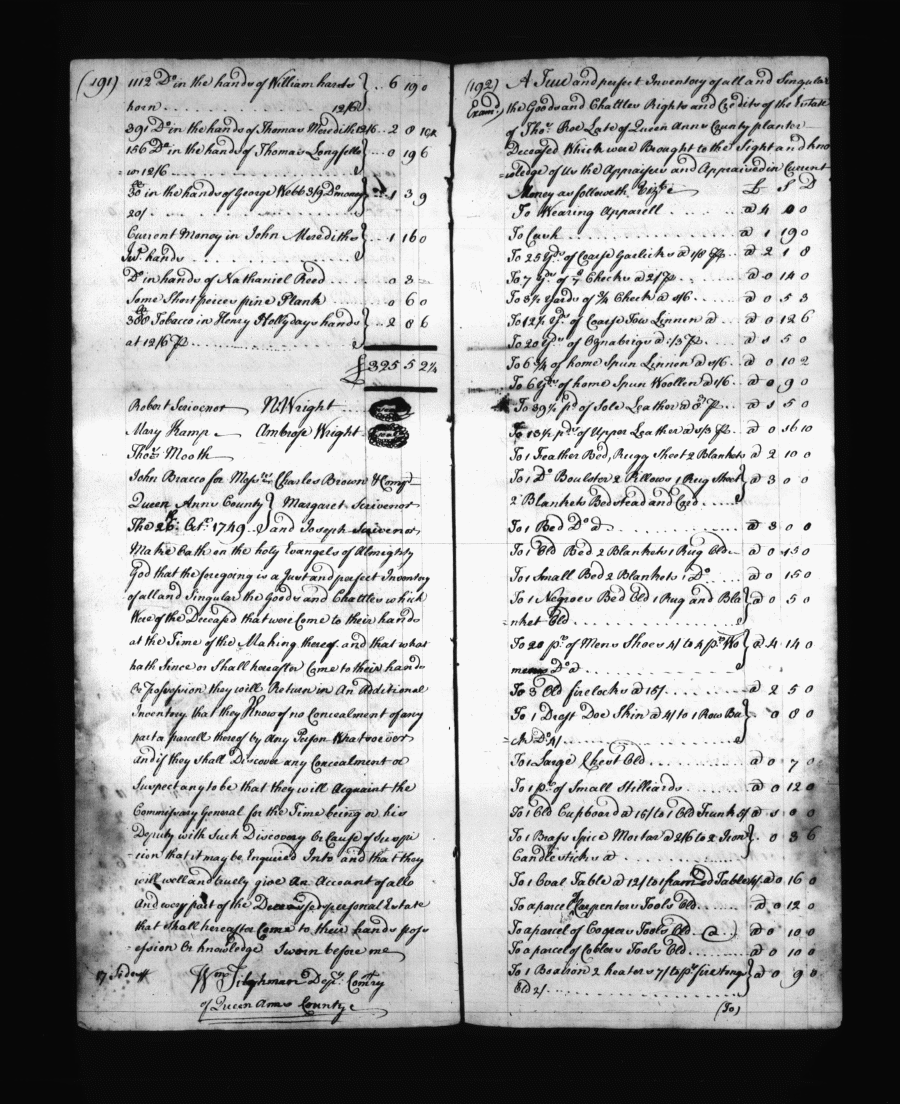 (191) 1112 Do in the hands of William hards } 6 19 0
horn . . . . 12/6
391 Do in the hands of Thomas Meredith 12/6 . . 2 8 10½
156 Do in the hands of Thomas Longfello } . . 0 19 6
=w 12/6
30 in the hands of George Webb 3/9 Do money } . . 1 3 9
20/ . . . .
Current Money in John Merediths } . . 1 16 0
Junr hands . . . .
Do in hands of Nathaniel Reed . . 0 3 =
Some Short peices pine Plank . . 0 6 0
388 Tobacco in Henry Hollydays hands } . . 2 8 6
at 12/6 P . . . .
£ 325 5 2¼
Robert Scrivenor N. Wright
Mary Kamp Ambrose Wright
Thos Mooth
John Bracco for Messrs Charles Brown & Compy
Queen Anns County } Margaret Scrivenor
The 26th Octr 1749 } and Joseph Scrivenor
Make Oath on the holy Evangels of Almighty
God that the foregoing is a Just and perfect Inventory
of all and Singular the Goods and Chattles which
Were of the Deceased that were Come to their hands
at the Time of the Making thereof and that what
hath Since or Shall hereafter Come to their hands
Or Possession they will Return in An Additional
Inventory that they Know of no Concealment of any
part a parcell thereof by Any Person Whatsoever
and if they Shall Discover any Concealment or
Suspect any to be that they will Acquaint the
Commissary General for the Time being or his
Deputy with Such Discovery Or Cause of Suspi
cion that it may be Enquired Into and that they
will well and truely give An Account of all
And every part of the Deceased's personal Estate
that Shall hereafter Come to their hands poss
=ession Or Knowledge Sworn before me
Wm Tilghman Depy Comry
of Queen Anns County
(192) A True and perfect Inventory of all and Singular
Exam.d the Goods and Chattles Rights and Credits of the Estate
of Thos Roe Late of Queen Anns County planter
Deceased Which were Brought to the Sight and kno
=wledge of Us the Appraisers and Appraised in Current
Money as followeth Vizt £ S D
To Wearing Apparell . . . . a 4 0 0
To Cash . . . . a 1 19 0
To 25 Yds of Coarse Garlicks a 1/8 P . . a 2 1 8
To 7 Yds of Checks a 2/ P . . a 0 14 0
To 3½ Yards of ¾ Check a 1/6 . . a 0 5 3
To 12½ Yds of Coarse Tow Linnen a . . a 0 12 6
To 20 Yds of Oznabrigs a 1/3 P . . a 1 5 0
To 6¾ of home Spun Linnen a 1/6 . . a 0 10 2
To 6 Yds of home Spun Woollen a 1/6 . . a 0 9 0
To 39½ pd of Sole Leather a P . . a 1 5 0
To 13½ pds of Upper Leather a 1/3 P . . a 0 16 10
To 1 Feather Bed, Rugg Sheet 2 Blankets a 2 10 0
To 1 Do Boulster 2 Pillows 1 Rug Sheet } a 3 0 0
2 Blankets Bedstead and Cord . . .
To 1 Bed Do a . . . . a 3 0 0
To 1 Old Bed 2 Blankets 1 Rug Old a 0 15 0
To 1 Small Bed 2 Blankets 1 Do . . a 0 15 0
To 1 Negroes Bed Old 1 Rug and Bla } a 0 5 0
=nket Old . . . .
To 20 pr of Mens Shoes 4/ to 4 pr Wo } a 4 14 0
mens Do a . . . .
To 3 Old firelocks a 15/ . . . . a 2 5 0
To 1 Drest Doe Skin a 4/ to 1 Raw Bu } . 0 8 0
=ck Do 4/ . . . .
To 1 Large Chest Old . . . . a 0 7 0
To 1 pr of Small Stilliards . . . . a 0 12 0
To 1 Old Cupboard a 15/ to 1 Old Trunk 5/ a 1 0 0
To 1 Brass Spice Mortar a 2/6 to 2 Iron } . 0 3 6
Candlesticks a . . . .
To 1 Oval Table a 12/ to 1 framed Table 4/ a 0 16 0
To a parcel of Carpenters Tools Old . . a 0 12 0
To a parcel of Coopers Tools Old . . a . . a 0 10 0
To a parcel of Coblers Tools Old . . . a 0 10 0
To 1 Box iron 2 heaters 7/ to 1 pr fire tongs } a 0 9 0
Old 2/ . . . .
(To)